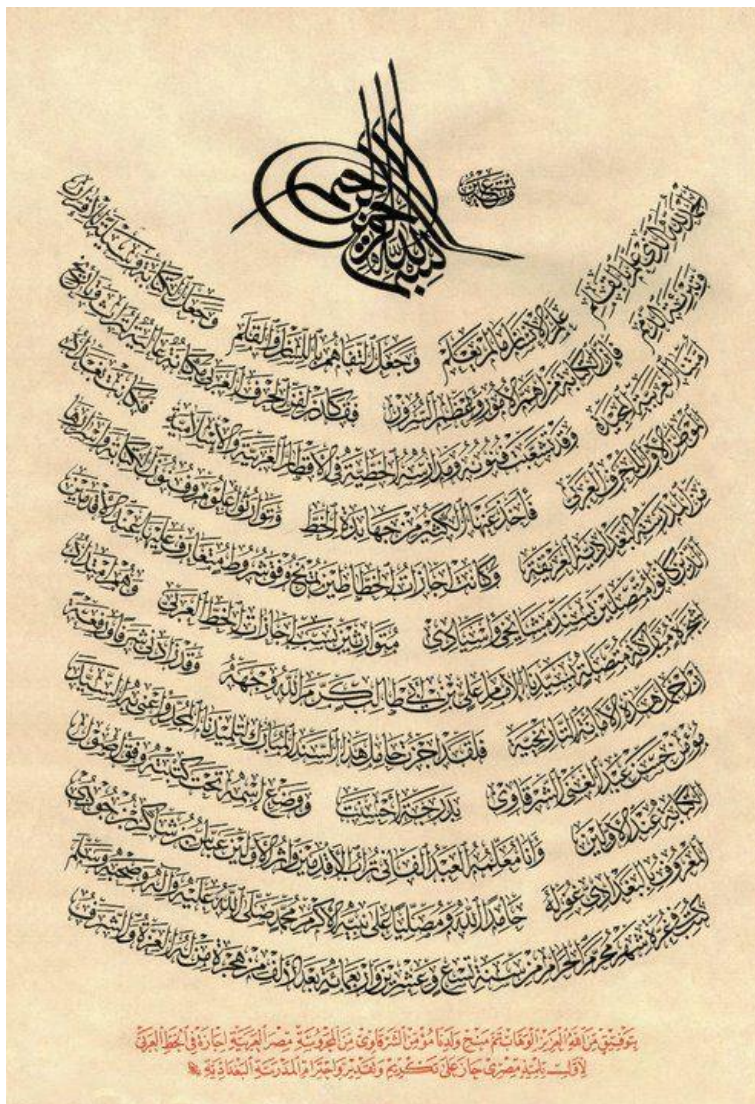 بسم الله الرحمن الرحيم
وبه نستعين
الحمد لله الذي علم بالقلم علم الإنسان ما لم يعلم وجعل التفاهم باللسان والقلم وجعل الكتابة وسيلة
فإن الكتابة من أهم الأمور وأعظم السرور فقد كان لفن الحرف العربي مكانة عالية
أمتنا العربية المجيدة وقد شعبت فنونه ومدارسه الخطية في الأقطار العربية والإسلامية فكانت بغداد
الموطن الأول للحرف العربي فأخذ عنها الكثير من جهابذة الخط وتوارثوا علومه وفنون الكتابة
من المدرسة البغدادية العريقة وكانت إجازات الخطاطين تمنح وفق شروط متعارف عليها عند الأقدمين
الذين كانوا متصلين بسند مشايخي وأسيادي متوارثين نسب إجازات الخط العربي وهم امتداد
شجرة مباركة متصلة بسيدنا الإمام علي بن أبي طالب كرم الله وجهه وقد زادت شرفا ورفعة
إذ أحمل هذه الأمانة التاريخية فلقد أجزت حامل هذا السند المبارك تلميذنا المجد وأعني به السيد
مؤمن حسن عبد الغني الشرقاوي بدرجة أحسنت ووضع اسمه تحت كتبته وفق أصول
الكتابة عند الأولين وأنا معلمه العبد الفاني تراب الأقدمين وإثر الأولين عباس شاكر جودي
المعروف بالبغدادي غفر له حامدا الله ومصليا على نبيه الأكرم محمد صلى الله عليه وآله وصحبه وسلم
كتب في غرة شهر محرم الحرام من سنة تسع وعشرين وأربعمائة بعد الألف من هجرة من له العزة والشرف
بتوفيق من الله العزيز الوهاب تم منح ولدنا مؤمن الشرقاوي من المحروسة مصر العربية إجازة في الخط العربي
لأول تلميذ مصري حاز على تكريم وتقدير واحترام المدرسة البغدادية